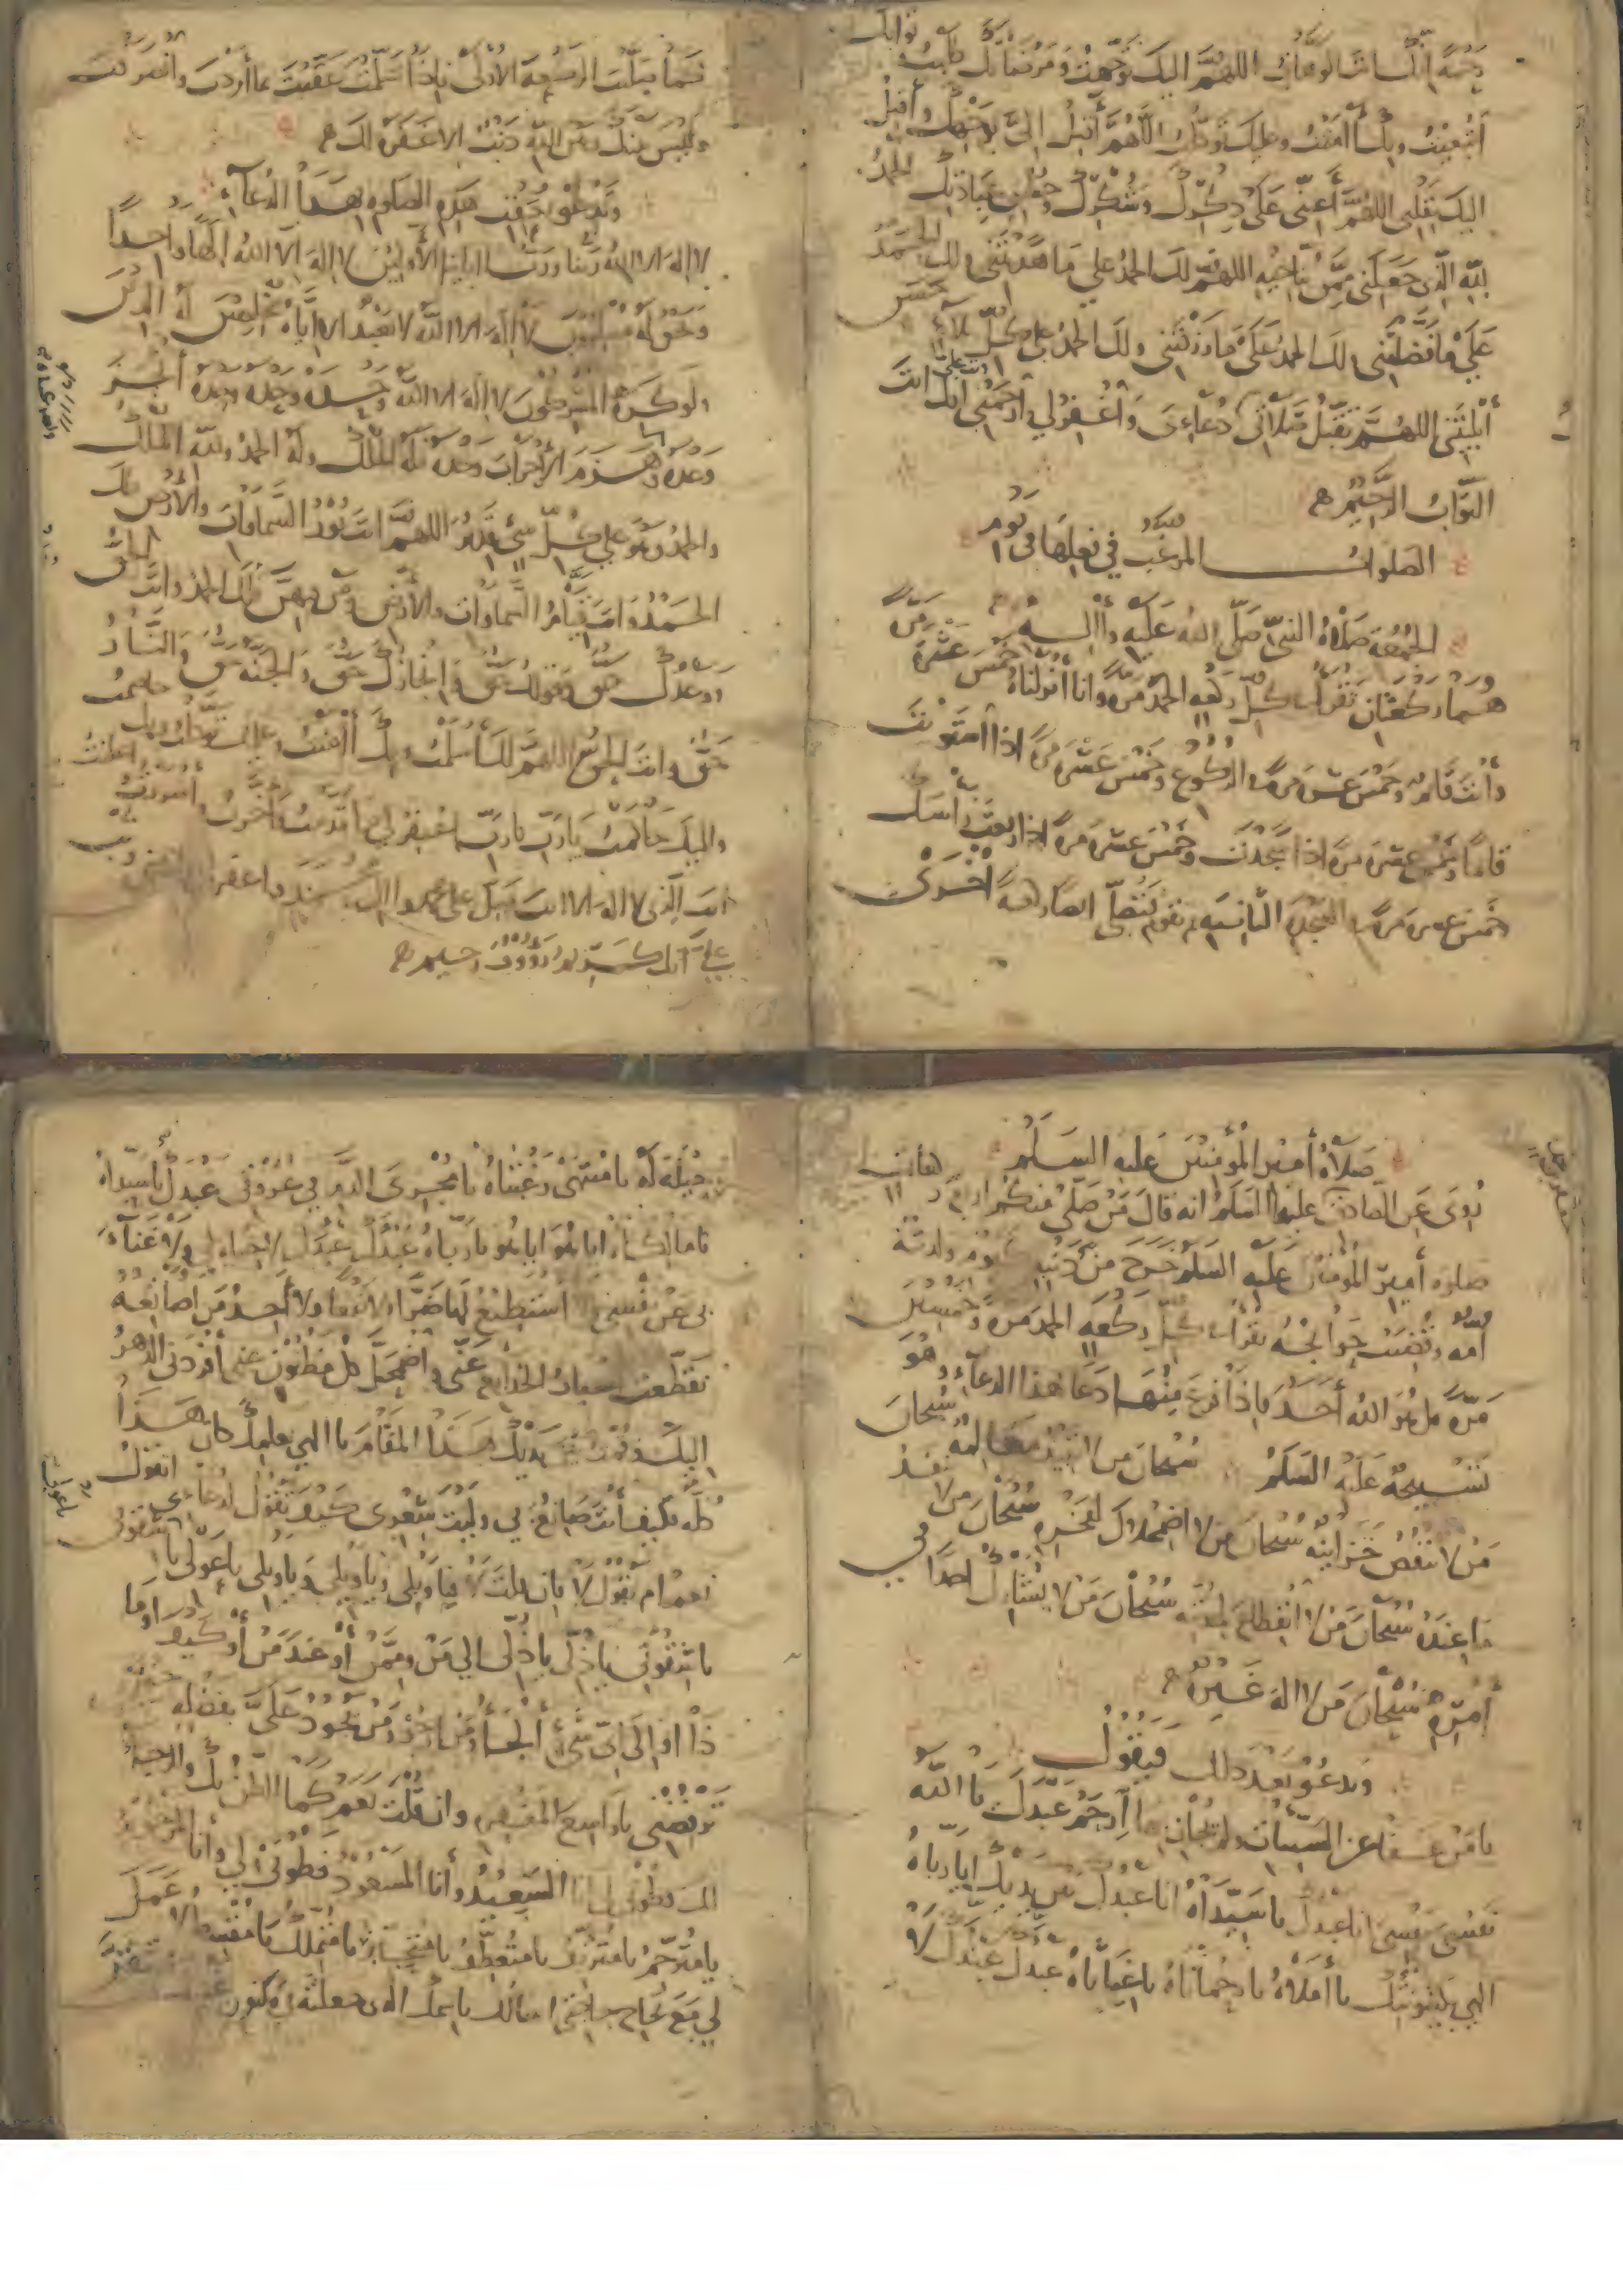 رحمة انك انت الوهاب اللهم اليك توجهت ومرضاتك طلبت ثوابك
ابتغيت وبك امنت وعليك توكلت اللهم أقبل الي بوجهك وأقبل
اليك بقلبي اللهم أعني على ذكرك وشكرك وحسن عبادتك الحمد
لله الذي جعلني ممن يناجيه اللهم لك الحمد على ما هديتني ولك الحمد
على ما فضلتني ولك الحمد على ما رزقتني ولك الحمد على كل بلاء حسن
أبليتني اللهم تقبل صلاتي دعاءى واغفر لي وارحمني وتب علي انك انت
التواب الرحيم
الصلوات المرغب في فعلها في يوم
الجمعة صلاة النبي صلى الله عليه وآله
هما ركعتان تقرأ في كل ركعة الحمد مرة وانا انزلناه خمس عشرة مرة
وأنت قائم وخمس عشرة مرة في الركوع وخمس عشرة مرة اذا استويت
قائما وخمس عشرة مرة اذا سجدت وخمس عشرة مرة اذا رفعت رأسك
خمس عشرة مرة في السجدة الثانية ثم تقوم فتصلي ايضا ركعة أخرى
كما صليت الركعة الأولى فاذا سلمت عقبت بما أردت وانصرفت
وليس بينك وبين الله ذنب الا غفره لك
وتدعو بعقب هذه الصلاة بهذا الدعاء
لا اله الا الله ربنا ورب ابائنا الأولين لا اله الا الله الها واحدا
ونحن له مسلمون لا اله الا الله لا نعبد الا اياه مخلصين له الدين
ولو كره المشركون لا اله الا الله وحده وحده وحده أنجز
وعده وهزم الأحزاب وحده فله الملك وله الحمد
والحمد وهو على كل شيء قدير اللهم انت نور السماوات والأرض فلك
الحمد وانت قيام السماوات والأرض ومن فيهن فلك الحمد وانت الحق
ووعدك حق وقولك حق وانجازك حق والجنة حق والنار
حق وانت الحق اللهم لك أسلمت وبك آمنت وعليك توكلت وبك خاصمت
واليك حاكمت يا رب يا رب اغفر لي ما قدمت وأخرت وأسررت وأعلنت
انت الذي لا اله الا انت صل على محمد وآل محمد واغفر لي وارحمني وتب
علي انك كريم رؤوف رحيم
صلاة أمير المؤمنين عليه السلم
روي عن الصادق عليه السلم انه قال من صلى منكم اربع ركعات
صلاة أمير المؤمنين عليه السلم خرج من ذنوبه كيوم ولدته
أمه وقضيت حوائجه تقرأ في كل ركعة الحمد مرة وخمسين
مرة قل هو الله أحد فاذا فرغ منها دعا بهذا الدعاء وهو
تسبيحه عليه السلم سبحان من لا تبيد معالمه سبحان
من لا تنقص خزائنه سبحان من لا اضمحلال لفخره سبحان من لا ينفد
ما عنده سبحان من لا انقطاع لمدته سبحان من لا يشارك احدا في
أمره سبحان من لا اله غيره
ويدعو بعد ذلك فيقول
يا من عفا عن السيئات ولم يجاز بها ارحم عبدك يا الله
نفسي نفسي انا عبدك يا سيداه انا عبدك بين يديك ايا رباه
الهي بكينونتك يا أملاه يا رحماناه يا غياثاه عبدك عبدك لا
حيلة له يا منتهى رغبتاه يا مجري الدم في عروقي عبدك يا سيداه
يا مالكاه ايا هو ايا هو يا رباه عبدك عبدك لا حيلة لي ولا غناء
بي عن نفسي ولا استطيع لها ضرا ولا نفعا ولا أجد من اصانعه
تقطعت اسباب الخدائع عني واضمحل كل مظنون عني أفردني الدهر
اليك فقمت بين يديك هذا المقام يا الهي بعلمك كان هذا
كله فكيف أنت صانع بي وليت شعري كيف تقول لدعاءي أتقول
نعم ام تقول لا فان قلت لا فيا ويلي ويا ويلي ويا ويلي يا عولي يا شقوتي
يا شقوتي يا ذلي يا ذلي الى من وممن أو عند من أو كيف او ما
ذا او الى اي شيء ألجأ ومن ارجو ومن يجود علي بفضله حين
ترفضني يا واسع المغفرة وان قلت نعم كما الظن بك والرجاء
لك فطوبى لي انا السعيد وأنا المسعود فطوبى لي وأنا المرحوم
يا مترحم يا مترئف يا متعطف يا متجبر يا متملك يا مقسط لا عمل
لي مع نجاح حاجتي اسألك باسمك الذي جعلته في مكنون